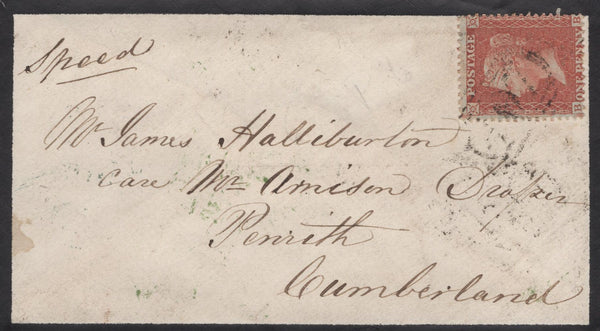 Speed
POSTAGE
ONE PENNY
Mr James Halliburton
care Mr Amison Draper
Penrith
Cumberland